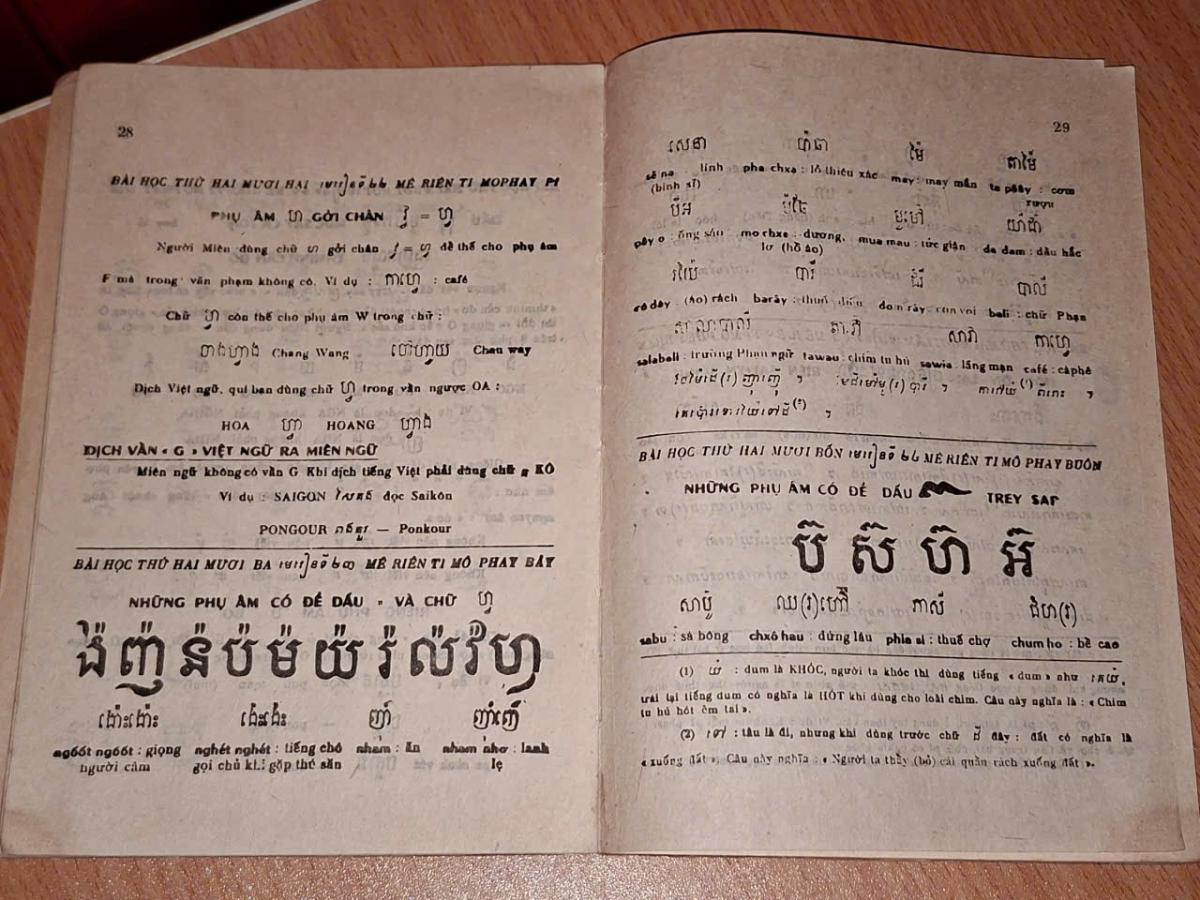 28
BÀI HỌC THỨ HAI MƯƠI HAI មេរៀនទី ២២ MÊ RIÊN TI MOPHAY PI
PHỤ ÂM ហ GỞI CHÂN វ = ហ្វ
Người Miên dùng chữ ហ gởi chân វ = ហ្វ để thế cho phụ âm
F mà trong văn phạm không có. Ví dụ : កាហ្វេ : café
Chữ ហ្វ còn thế cho phụ âm W trong chữ :
ចាងហ្វាង Chang Wang ចៅហ្វាយ Chau way
Dịch Việt ngữ, quí bạn dùng chữ ហ្វ trong vần ngược OA :
HOA ហ្វា HOANG ហ្វាង
DỊCH VẦN « G » VIỆT NGỮ RA MIÊN NGỮ
Miên ngữ không có vần G Khi dịch tiếng Việt phải dùng chữ គ KÔ
Ví dụ : SAIGON đọc Saikôn
PONGOUR — Ponkour
BÀI HỌC THỨ HAI MƯƠI BA មេរៀនទី ២៣ MÊ RIÊN TI MÔ PHAY BÂY
NHỮNG PHỤ ÂM CÓ ĐỀ DẤU " VÀ CHỮ ហ្វ
ង៉ ញ៉ ន៉ ប៉ ម៉ យ៉ រ៉ ល៉ វ៉ ហ្វ
ង៉ោះង៉ោះ ង៉េះង៉េះ ញ៉ាំ ញ៉ាំញ៉ើ
ngôôt ngôôt : giọng nghét nghét : tiếng chó nham : ăn nham nhơ : lanh
người câm gọi chủ khi gặp thú săn lẹ
29
សេនា ប៉ាឆា ម៉ៃ តាម៉ៃ
sê na lính pha chxa : lò thiêu xác may : may mắn ta pấây : cơm
(binh sĩ) rượu
ប៉ីអ ម៉ូហៅ យ៉ាដាំ
pây o : ống sáo mo chxe : dương, mua mau : tức giận da dam : dầu hắc
lơ (hồ ào)
រយ៉ៃ បារី ដំរី បាលី
rô dây : (áo) rách barây : thuốc điếu dom rây : con voi bali : chữ Phạn
សាលាបាលី តាវ៉ៅ សាវ៉ា កាហ្វេ
salabali : trường Phạn ngữ tawau : chim tu hú sawia : lãng mạn café : cà phê
BÀI HỌC THỨ HAI MƯƠI BỐN មេរៀនទី ២៤ MÊ RIÊN TI MÔ PHAY BUÔN
NHỮNG PHỤ ÂM CÓ ĐỀ DẤU TREY SAP
ប៊ ស៊ ហ៊ អ៊
សាប៊ូ ឈ(រ)ហ៊ើ ភាស៊ី ជំហ(រ)
sabu : sà bông chxô hau : đứng lâu phia si : thuế chợ chum ho : bề cao
(1) យំ : dum là KHÓC, người ta khóc thì dùng tiếng « dum » như គេយំ,
trái lại tiếng dum có nghĩa là HÓT khi dùng cho loài chim. Câu này nghĩa là : « Chim
tu hú hót êm tai ».
(2) ទៅ : tâu là đi, nhưng khi dùng trước chữ ដី đây : đất có nghĩa là
« xuống đất ». Câu này nghĩa : « Người ta thầy (bỏ) cái quần rách xuống đất ».